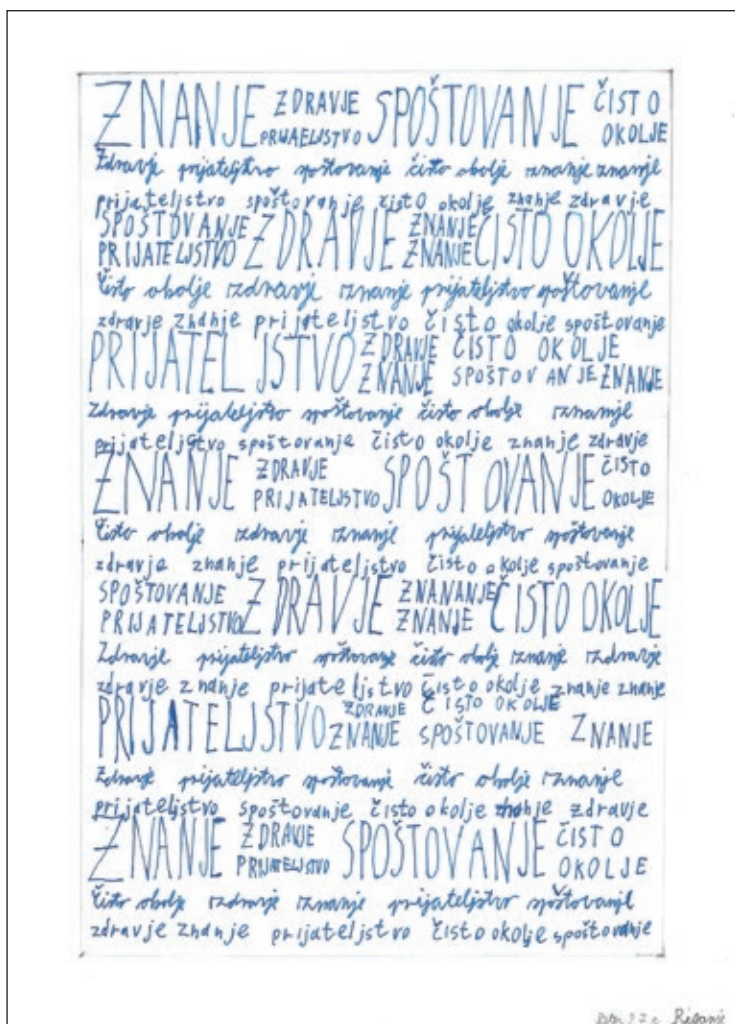 ZNANJE ZDRAVJE SPOŠTOVANJE ČISTO
PRIJAELJSTVO OKOLJE
Zdravje prijateljstvo spoštovanje čisto okolje znanje znanje
prijateljstvo spoštovanje čisto okolje znanje zdravje
SPOŠTOVANJE ZDRAVJE ZNANJE ČISTO OKOLJE
PRIJATELJSTVO ZNANJE
čisto okolje zdravje znanje prijateljstvo spoštovanje
zdravje znanje prijateljstvo čisto okolje spoštovanje
PRIJATELJSTVO ZDRAVJE ČISTO OKOLJE
ZNANJE SPOŠTOVANJE ZNANJE
Zdravje prijateljstvo spoštovanje čisto okolje znanje
prijateljstvo spoštovanje čisto okolje znanje zdravje
ZNANJE ZDRAVJE SPOŠTOVANJE ČISTO
PRIJATELJSTVO OKOLJE
čisto okolje zdravje znanje prijateljstvo spoštovanje
zdravje znanje prijateljstvo čisto okolje spoštovanje
SPOŠTOVANJE ZDRAVJE ZNANANJE ČISTO OKOLJE
PRIJATELJSTVO ZNANJE
Zdravje prijateljstvo spoštovanje čisto okolje znanje zdravje
zdravje znanje prijateljstvo čisto okolje znanje znanje
PRIJATELJSTVO ZDRAVJE ČISTO OKOLJE
ZNANJE SPOŠTOVANJE ZNANJE
Zdravje prijateljstvo spoštovanje čisto okolje znanje
prijateljstvo spoštovanje čisto okolje znanje zdravje
ZNANJE ZDRAVJE SPOŠTOVANJE ČISTO
PRIJATELJSTVO OKOLJE
čisto okolje zdravje znanje prijateljstvo spoštovanje
zdravje znanje prijateljstvo čisto okolje spoštovanje